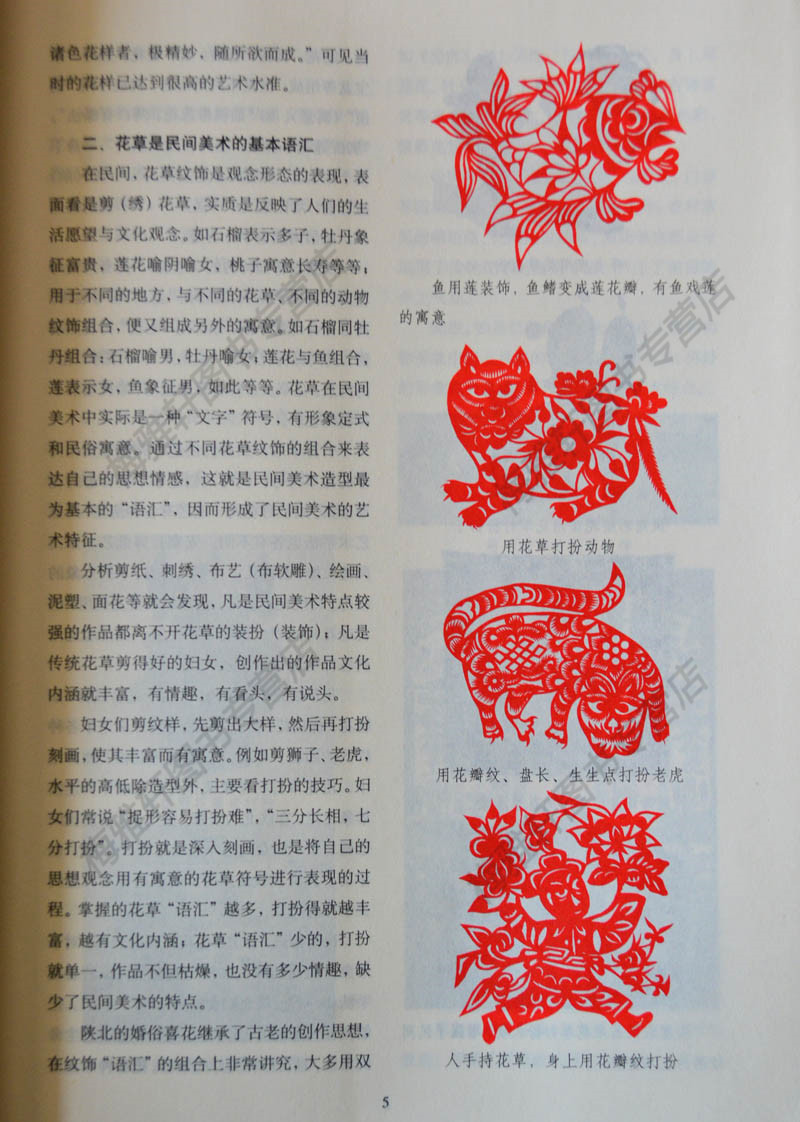 诸色花样者，极精妙，随所欲而成。”可见当
时的花样已达到很高的艺术水准。
二、花草是民间美术的基本语汇
在民间，花草纹饰是观念形态的表现，表
面看是剪（绣）花草，实质是反映了人们的生
活愿望与文化观念。如石榴表示多子，牡丹象
征富贵，莲花喻阴喻女，桃子寓意长寿等等；
用于不同的地方，与不同的花草、不同的动物
纹饰组合，便又组成另外的寓意。如石榴同牡
丹组合：石榴喻男，牡丹喻女；莲花与鱼组合，
莲表示女，鱼象征男，如此等等。花草在民间
美术中实际是一种“文字”符号，有形象定式
和民俗寓意。通过不同花草纹饰的组合来表
达自己的思想情感，这就是民间美术造型最
为基本的“语汇”，因而形成了民间美术的艺
术特征。
分析剪纸、刺绣、布艺（布软雕）、绘画、
泥塑、面花等就会发现，凡是民间美术特点较
强的作品都离不开花草的装扮（装饰）；凡是
传统花草剪得好的妇女，创作出的作品文化
内涵就丰富，有情趣，有看头，有说头。
妇女们剪纹样，先剪出大样，然后再打扮
刻画，使其丰富而有寓意。例如剪狮子、老虎，
水平的高低除造型外，主要看打扮的技巧。妇
女们常说“捉形容易打扮难”，“三分长相，七
分打扮”。打扮就是深入刻画，也是将自己的
思想观念用有寓意的花草符号进行表现的过
程。掌握的花草“语汇”越多，打扮得就越丰
富，越有文化内涵；花草“语汇”少的，打扮
就单一，作品不但枯燥，也没有多少情趣，缺
少了民间美术的特点。
陕北的婚俗喜花继承了古老的创作思想，
在纹饰“语汇”的组合上非常讲究，大多用双
鱼用莲装饰，鱼鳍变成莲花瓣，有鱼戏莲
的寓意
用花草打扮动物
用花瓣纹、盘长、生生点打扮老虎
人手持花草，身上用花瓣纹打扮
5